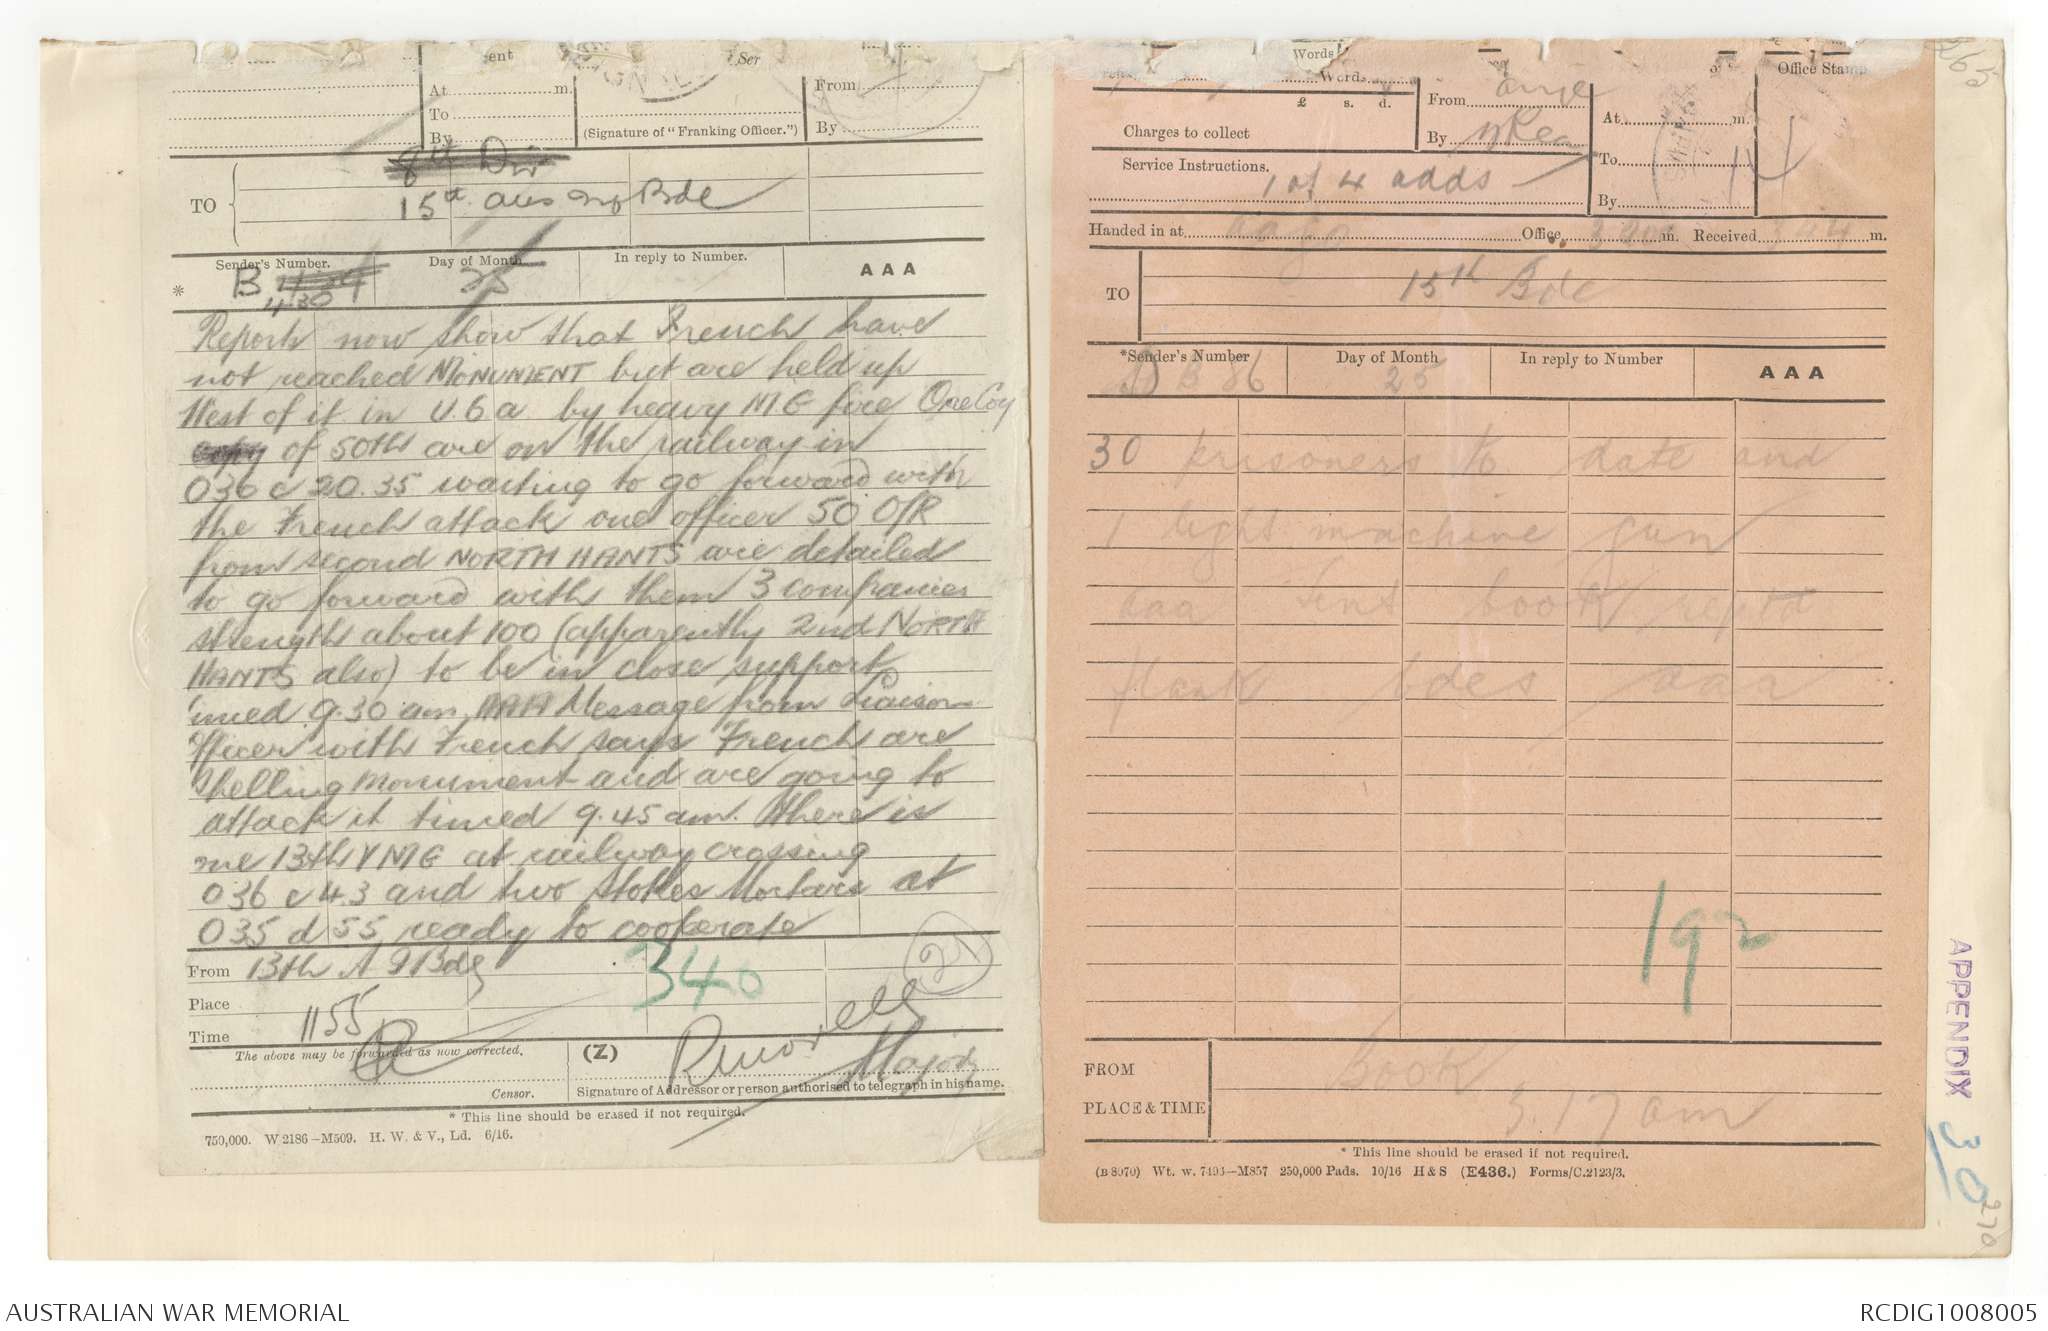 ent
Ser
At m.
To
By
(Signature of "Franking Officer.")
From
By
TO
8th Div
15th Aus Inf Bde
Sender's Number.
Day of Month
In reply to Number.
AAA
*
B
430
25
Reports now show that French have
not reached MONUMENT but are held up
West of it in U.6a by heavy M.G fire One Coy
of 50th are on the railway in
O36 c 20.35 waiting to go forward with
the French attack one officer 50 O/R
from second NORTH HANTS are detailed
to go forward with them 3 companies
strength about 100 (apparently 2nd NORTH
HANTS also) to be in close support
timed 9.30 am AAA Message from Liaison
Officer with French says French are
shelling monument and are going to
attack it timed 9.45 am. There is
one 13th VMG at railway crossing
O36 c 4.3 and two Stokes Mortars at
O35 d 55 ready to cooperate
From 13th A I Bde
Place
Time 1155
340
21
The above may be forwarded as now corrected.
(Z)
Major
Censor.
Signature of Addressor or person authorised to telegraph in his name.
* This line should be erased if not required.
750,000. W 2186—M509. H. W. & V., Ld. 6/16.
Words
Words
£ s. d.
Charges to collect
Service Instructions.
1 of 4 adds
From
By
At m.
To
By
Office Stamp
Handed in at Office m. Received m.
TO
15th Bde
*Sender's Number
Day of Month
In reply to Number
AAA
B 86
25
30 prisoners to date and
1 light machine gun
aaa Sent book reptd
flank bdes aaa
192
FROM
Book
PLACE & TIME
3.17 am
* This line should be erased if not required.
(B 8970) Wt. w. 7493—M857 250,000 Pads. 10/16 H & S (E436.) Forms/C.2123/3.
265
APPENDIX 30
270
AUSTRALIAN WAR MEMORIAL
RCDIG1008005